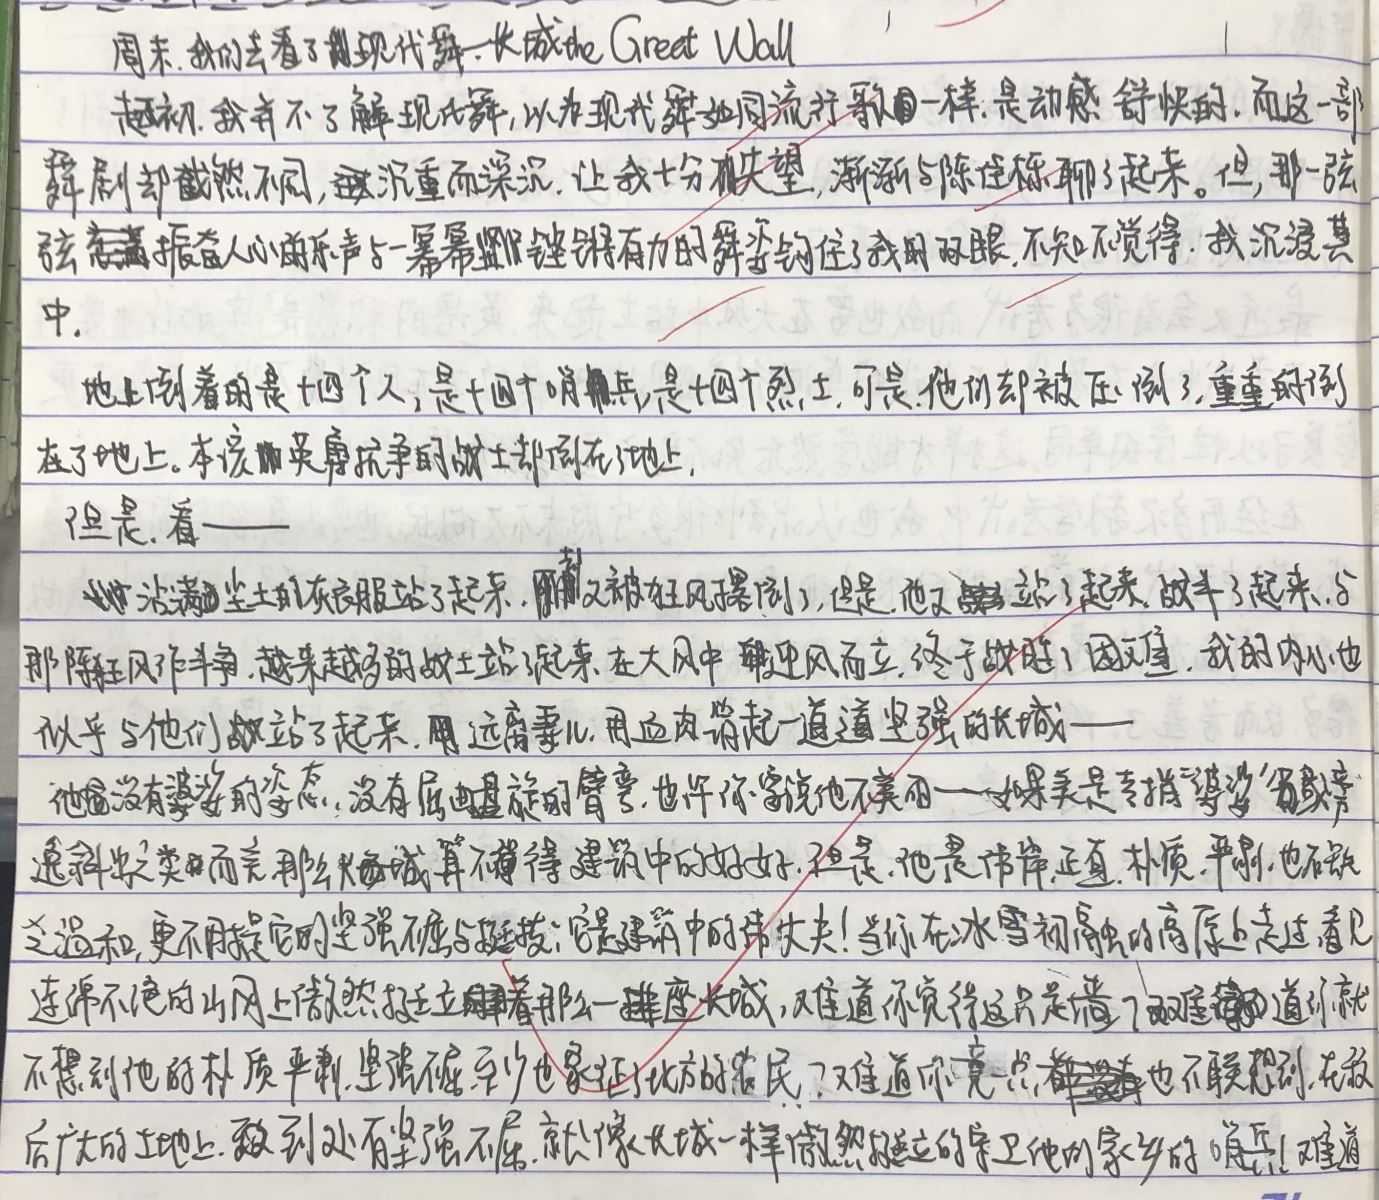 周末,我们去看了现代舞—长城the Great Wall
起初,我并不了解现代舞,以为现代舞如同流行歌一样,是动感舒快的,而这一部
舞剧却截然不同,沉重而深沉,让我十分失望,渐渐与陈佳栋聊了起来。但,那一弦
弦振奋人心的乐声与一幕幕铿锵有力的舞姿钩住了我的双眼,不知不觉得,我沉浸其
中.
地上倒着的是十四个人,是十四个哨兵,是十四个烈士,可是,他们却被压倒了,重重的倒
在了地上。本该英勇抗争的战士却倒在了地上,
但是,看——
沾满尘土的灰衣服站了起来,刹又被狂风撂倒了,但是,他又站了起来,战斗了起来,与
那阵狂风作斗争,越来越多的战士站了起来,在大风中迎风而立,终于战胜了困难,我的内心也
似乎与他们站了起来,远离妻儿,用血肉筑起一道道坚强的长城——
他没有婆娑的姿态,没有屈曲盘旋的臂弯,也许你会说他不美丽——如果美是专指“婆娑”或
逸斜出之类而言,那么长城算不得建筑中的好女,但是,他是伟岸,正直,朴质,严肃,也不缺
乏温和,更不用提它的坚强不屈与挺拔,它是建筑中的伟丈夫!当你在冰雪初融的高原上走过,看见
连绵不绝的山冈上傲然挺立着那么一座长城,难道你觉得这只是墙?难道你就
不想到他的朴质严肃,坚强不屈,至少也象征了北方的农民?难道你竟一点也不联想到,在敌
后广大的土地上,到处有坚强不屈,就像长城一样傲然挺立的守卫他的家乡的哨兵!难道